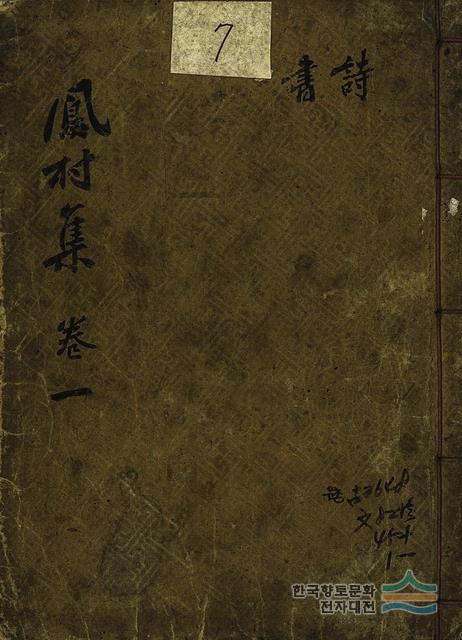 7
詩
書
鳳村集 卷一
한국향토문화
전자대전